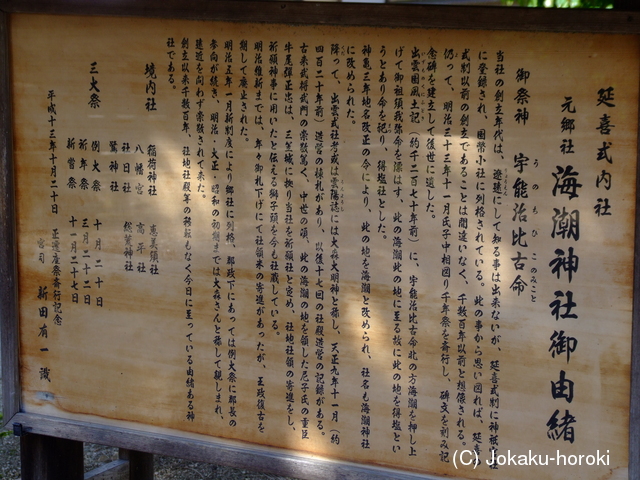 延喜式内社
元郷社 海潮神社御由緒
御祭神 宇能治比古命
うのちひこのみこと
当社の創立年代は、遼遠にして知る事は出来ないが、延喜式則に神祇官社
に登録され、国幣小社に列格されている。此の事から思い図れば、延喜
式則以前の創立であることは間違いなく、千数百年以前と想像される。
仍って、明治三十三年十一月氏子中相図り千年祭を斎行し、碑文を刻み記
念碑を建立して後世に遺した。
出雲国風土記(約千二百七十年前)に、宇能治比古命北の方海潮を押し上
げて御祖須我弥命を漂はす、此の海潮此の地に至る故に此の地を得塩とい
うとあり命を祀り、得塩社とした。
神亀三年地名改正の令により、此の地を海潮と改められ、社名も海潮神社
に改められた。
降って、出雲式社考或は雲陽誌には大森大明神と称し、天正九年十一月(約
四百二十年前)造営の棟札があり、以後十七回の社殿造営の記録がある。
古来武将武門の崇敬篤く、中世の頃、此の海潮の地を領した尼子氏の重臣
牛尾弾正忠は、三笠城に拠り当社を祈願社と定め、社地社領の寄進をし、
祈願神事に用いたと伝える獅子頭を今も社蔵している。
明治維新までは、年々御札下げにて社領米の寄進があったが、王政復古を
期して廃止された。
明治五年一月新制度により郷社に列格、郡政下にあっては例大祭に郡長の
参向が続き、明治・大正・昭和の初期までは大森さんと称して親しまれ、
遠近を問わず崇敬されて来た。
創立以来千数百年、社地社殿等の移転もなく今日に至っている由緒ある神
社である。
境内社 稲荷神社 恵美須社
八幡宮 高平社
社日社 総荒神社
鷺神社
三大祭 例大祭 十月二十日
祈年祭 三月二十二日
新嘗祭 十二月二十七日
平成十三年十月二十日 正遷座祭斎行記念
宮司 新田有一 識
(C) Jokaku-horoki